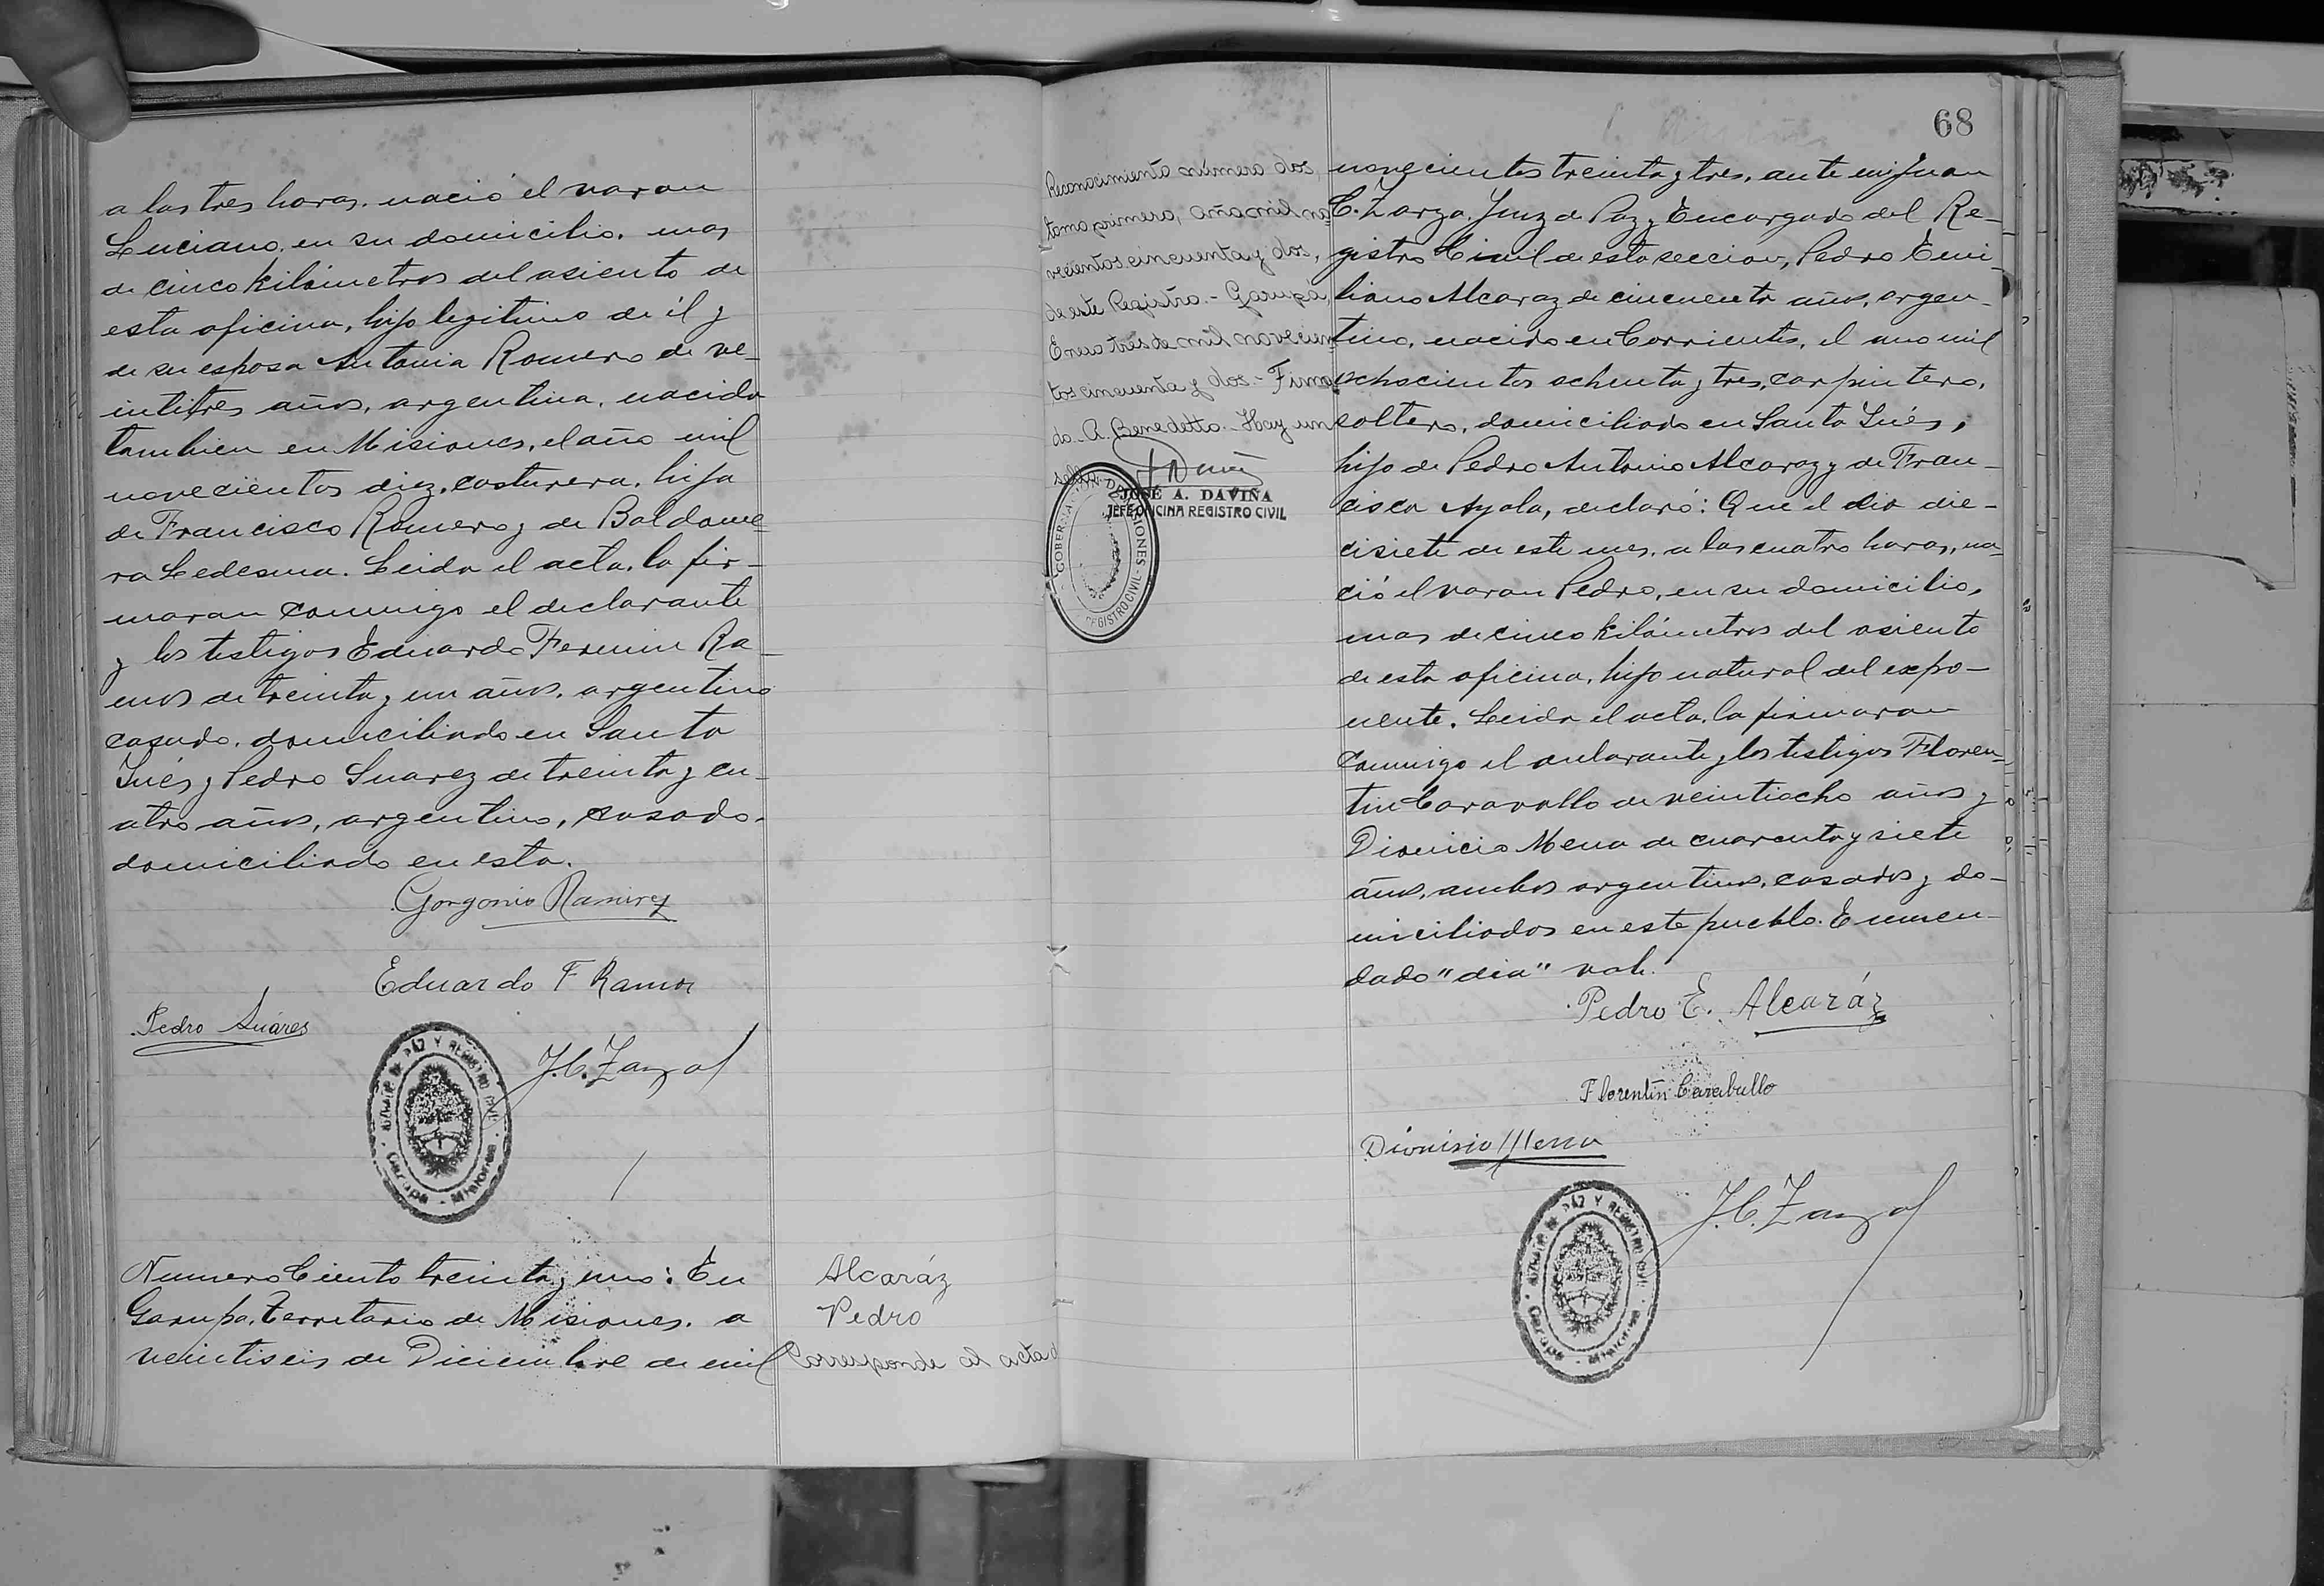 a las tres horas. nació el varon
Luciano, en su domicilio. mas
de cinco kilómetros del asiento de
esta oficina, hijo legitimo de él y
de su esposa Antonia Romero de ve-
intitres años, argentina, nacida
tambien en Misiones, el año mil
novecientos diez, costurera, hija
de Francisco Romero y de Baldome-
ra Ledesma. Leida el acta, la fir-
maron conmigo el declarante
y los testigos Eduardo Fermin Ra-
mos de treinta y un años, argentino
casado, domiciliado en Santa
Inés y Pedro Suarez de treinta y cu-
atro años, argentino, casado.
domiciliado en esta.
Gorgonio Ramirez
Eduardo F Ramos
Pedro Suáres
J.C. Zarza
JUZGADO DE PAZ Y REGISTRO CIVIL
Garupa - Misiones
Numero Ciento treinta y uno: En
Garupa, Territorio de Misiones. a
veintiseis de Diciembre de mil
Alcaráz
Pedro
Corresponde al acta d
68
Reconocimiento número dos,
tomo primero, año mil no
vecientos cincuenta y dos,
de este Registro.- Garupa
Enero tres de mil novecien
tos cincuenta y dos.- Firma
do. A. Benedetto.- Hay un
sello.
JOSÉ A. DAVIÑA
JEFE OFICINA REGISTRO CIVIL
GOBERNACION DE MISIONES
REGISTRO CIVIL
novecientos treinta y tres, ante mi Juan
C. Zarza, Juez de Paz y Encargado del Re-
gistro Civil de esta seccion, Pedro Emi-
liano Alcaraz de cincuenta años, argen-
tino, nacido en Corrientes, el ano mil
ochocientos ochenta y tres, carpintero,
soltero, domiciliado en Santa Inés,
hijo de Pedro Antonio Alcaraz y de Fran-
cisca Ayala, declaró: Que el dia die-
cisiete de este mes, a las cuatro horas, na-
ció el varon Pedro, en su domicilio,
mas de cinco kilómetros del asiento
de esta oficina, hijo natural del expo-
nente. Leida el acta, la firmaron
conmigo el declarante y los testigos Floren-
tin Caravallo de veintiocho años y
Dionicio Mena de cuarenta y siete
años, ambos argentinos, casados y do-
miciliados en este pueblo. Enmen-
dado "dia" vale.
Pedro E. Alcaráz
Florentín Caraballo
Dionisio Mena
J.C. Zarza
JUZGADO DE PAZ Y REGISTRO CIVIL
Garupa - Misiones